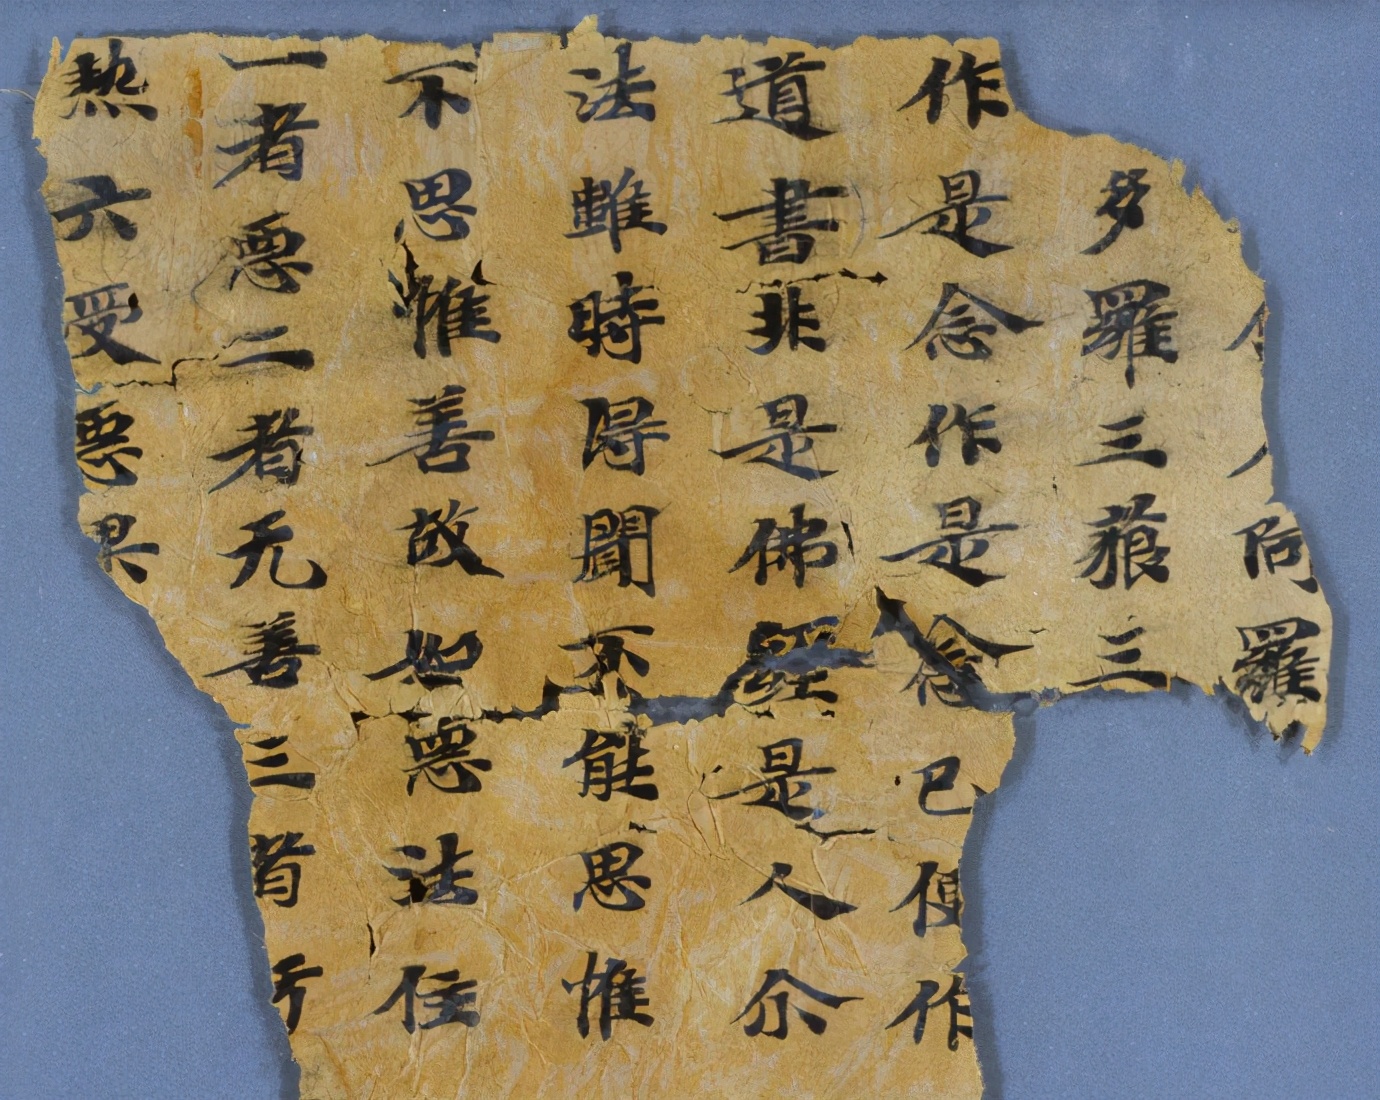 阿羅
多羅三藐三
作是念作是念已便作
道書非是佛經是人尒
法雖時得聞不能思惟
不思惟善故也惡法住
一者惡二者无善三者
熱六受惡果